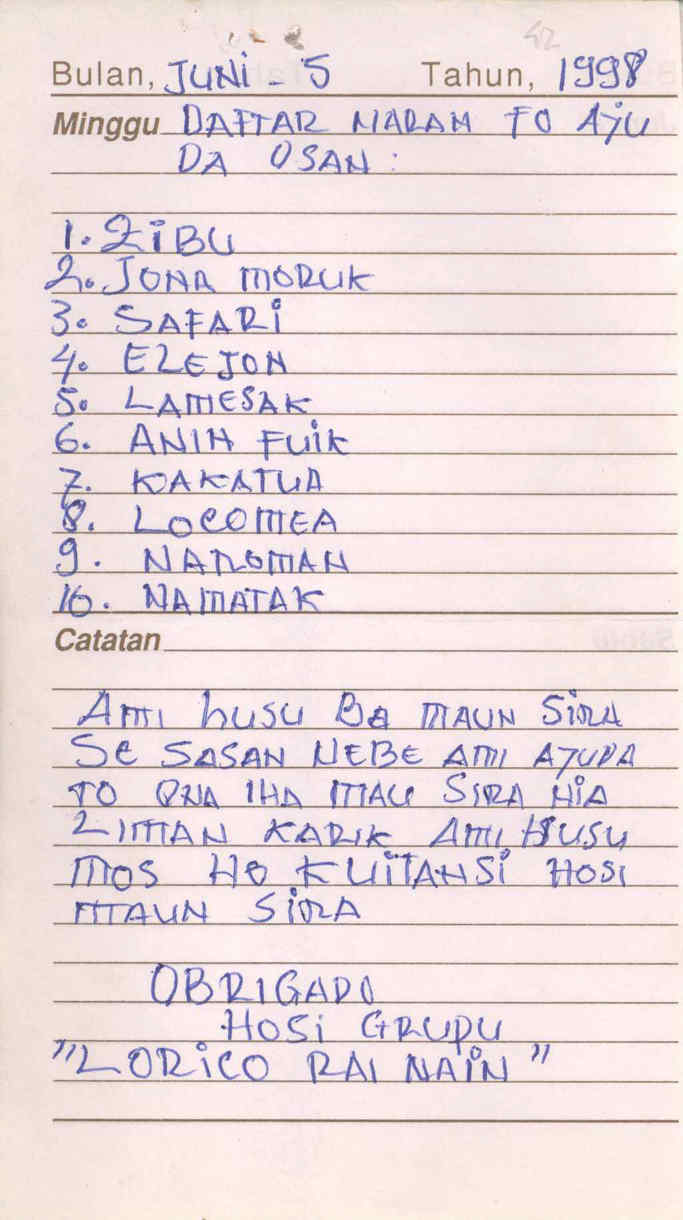 42
Bulan, JUNI - 5 Tahun, 1998
Minggu DAFTAR NARAN FO AJU
DA OSAN :
1. ZiBU
2. JONA MORUK
3. SAFARi
4. ELEJON
5. LAMESAK
6. ANIN FUiK
7. KAKATUA
8. LOCOMEA
9. NAROMAN
10. NAMATAK
Catatan
AMI husu BA MAUN SiRA
SE SASAN NEBE AMI AJUDA
TO ONA IHA MAU SIRA NiA
LIMAN KARIK AMI HUSU
MOS HO KUiTANSi HOSI
MAUN SiRA
OBRIGADO
HOSi GRUPU
"LORiCO RAI NAiN"